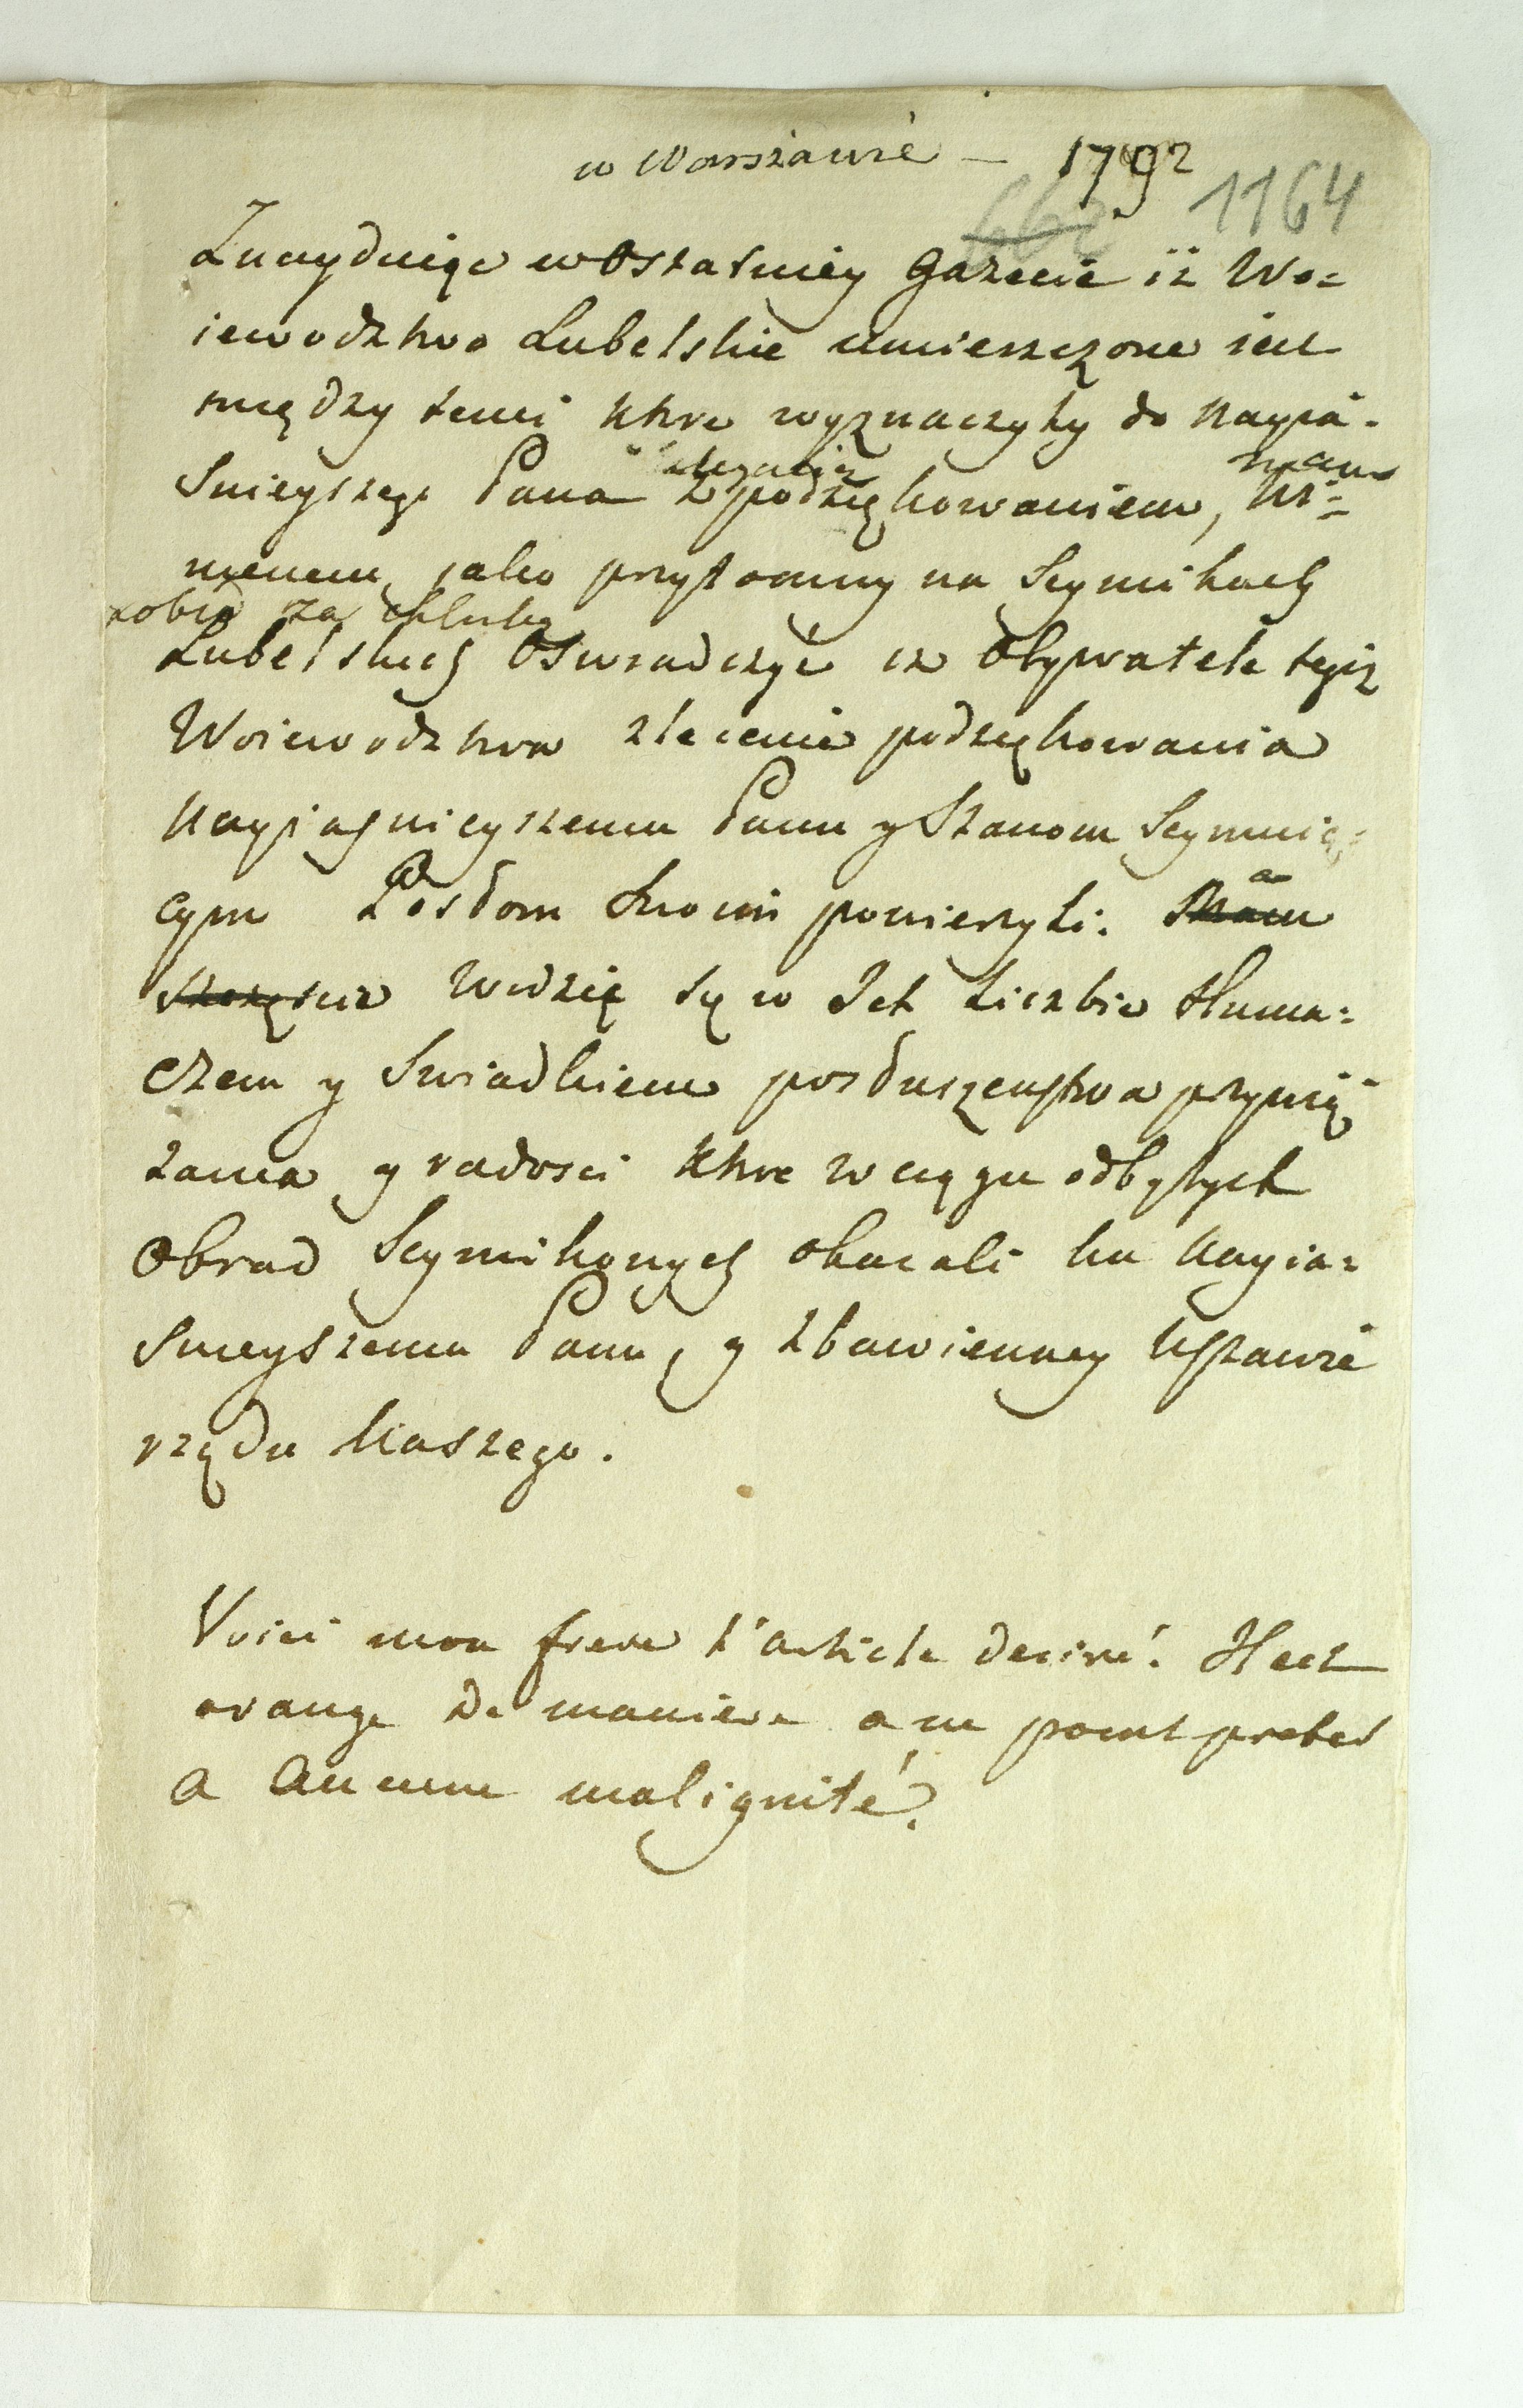 w Warszawie — 1792
662 1164
Znaydując w Ostatniey Gazecie iż Wo=
iewodztwo Lubelskie umieszczone iest
między temi ktore wyznaczyły do Nayia-
delegacią mam
Snieyszego Pana z podziękowaniem,
jako przytomny na Seymikach
sobie za chlubę
Lubelskich Oswiadczyć iz Obywatele tegiż
Woiewodztwa zlecenie podziękowania
Nayjasnieyszemu Panu y Stanom Seymuią=
cym Posłom Swoim powierzyli. a Mam
szczęscie Widzię się w Ich Liczbie tłuma=
czem y Swiadkiem posłuszenstwa przywią
zania y radosci ktore w ciągu odbytych
Obrad Seymikowych okazali ku Nayia=
Snieyszemu Panu, y zbawienney Ustawie
rządu Naszego.
Voici mon frere l'article desiré. Il est
arangé de maniere a ne point preter
a Aucune malignité.